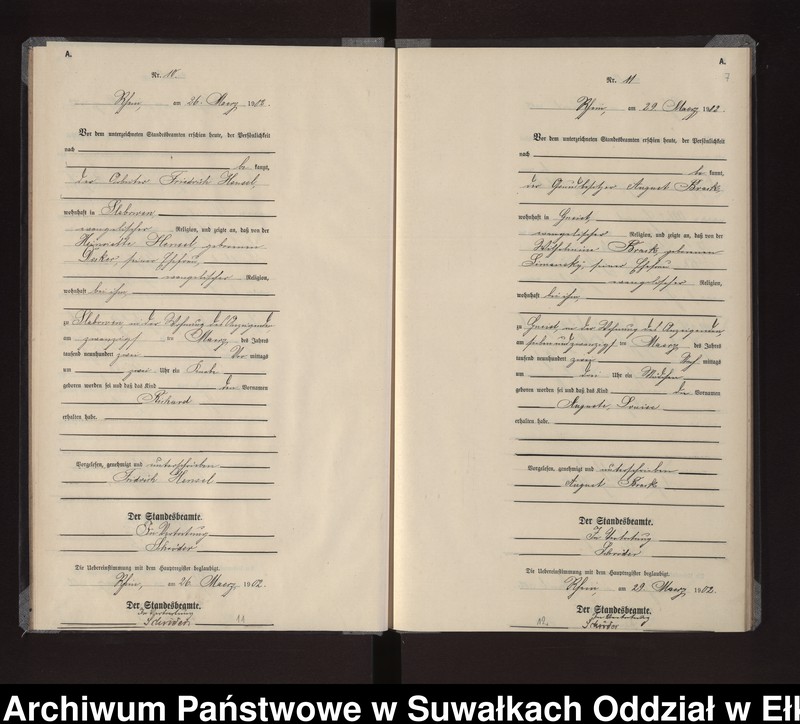 A.
Nr. 10
Rhein, am 26. Maerz 1902.
Vor dem unterzeichneten Standesbeamten erschien heute, der Persönlichkeit
nach
be kannt,
der Friedrich Hensel,
wohnhaft in Slabowen
evangelischer Religion, und zeigte an, daß von der
Henriette Hensel, geborenen
seiner Ehefrau,
evangelischer Religion,
wohnhaft bei ihm,
zu Slabowen in der Wohnung des Anzeigenden
am zwanzigsten Maerz des Jahres
tausend neunhundert zwei Vor mittags
um zwei Uhr ein Knabe
geboren worden sei und daß das Kind den Vornamen
Richard
erhalten habe.
Vorgelesen, genehmigt und unterschrieben
Friedrich Hensel
Der Standesbeamte.
In Vertretung
Schröder
Die Uebereinstimmung mit dem Hauptregister beglaubigt.
Rhein, am 26. Maerz 1902.
Der Standesbeamte.
In Vertretung
Schröder
11
A.
7
Nr. 11
Rhein, am 29. Maerz 1902.
Vor dem unterzeichneten Standesbeamten erschien heute, der Persönlichkeit
nach
be kannt,
der Grundbesitzer August Brack
wohnhaft in Gneist,
evangelischer Religion, und zeigte an, daß von der
Wilhelmine Brack, geborenen
seiner Ehefrau
evangelischer Religion,
wohnhaft bei ihm,
zu Gneist in der Wohnung des Anzeigenden
am siebenundzwanzigsten Maerz des Jahres
tausend neunhundert zwei Nach mittags
um drei Uhr ein Mädchen
geboren worden sei und daß das Kind die Vornamen
Auguste, Louise
erhalten habe.
Vorgelesen, genehmigt und unterschrieben
August Brack
Der Standesbeamte.
In Vertretung
Schröder
Die Uebereinstimmung mit dem Hauptregister beglaubigt.
Rhein, am 29. Maerz 1902.
Der Standesbeamte.
In Vertretung
Schröder
12
Archiwum Państwowe w Suwałkach Oddział w Eł